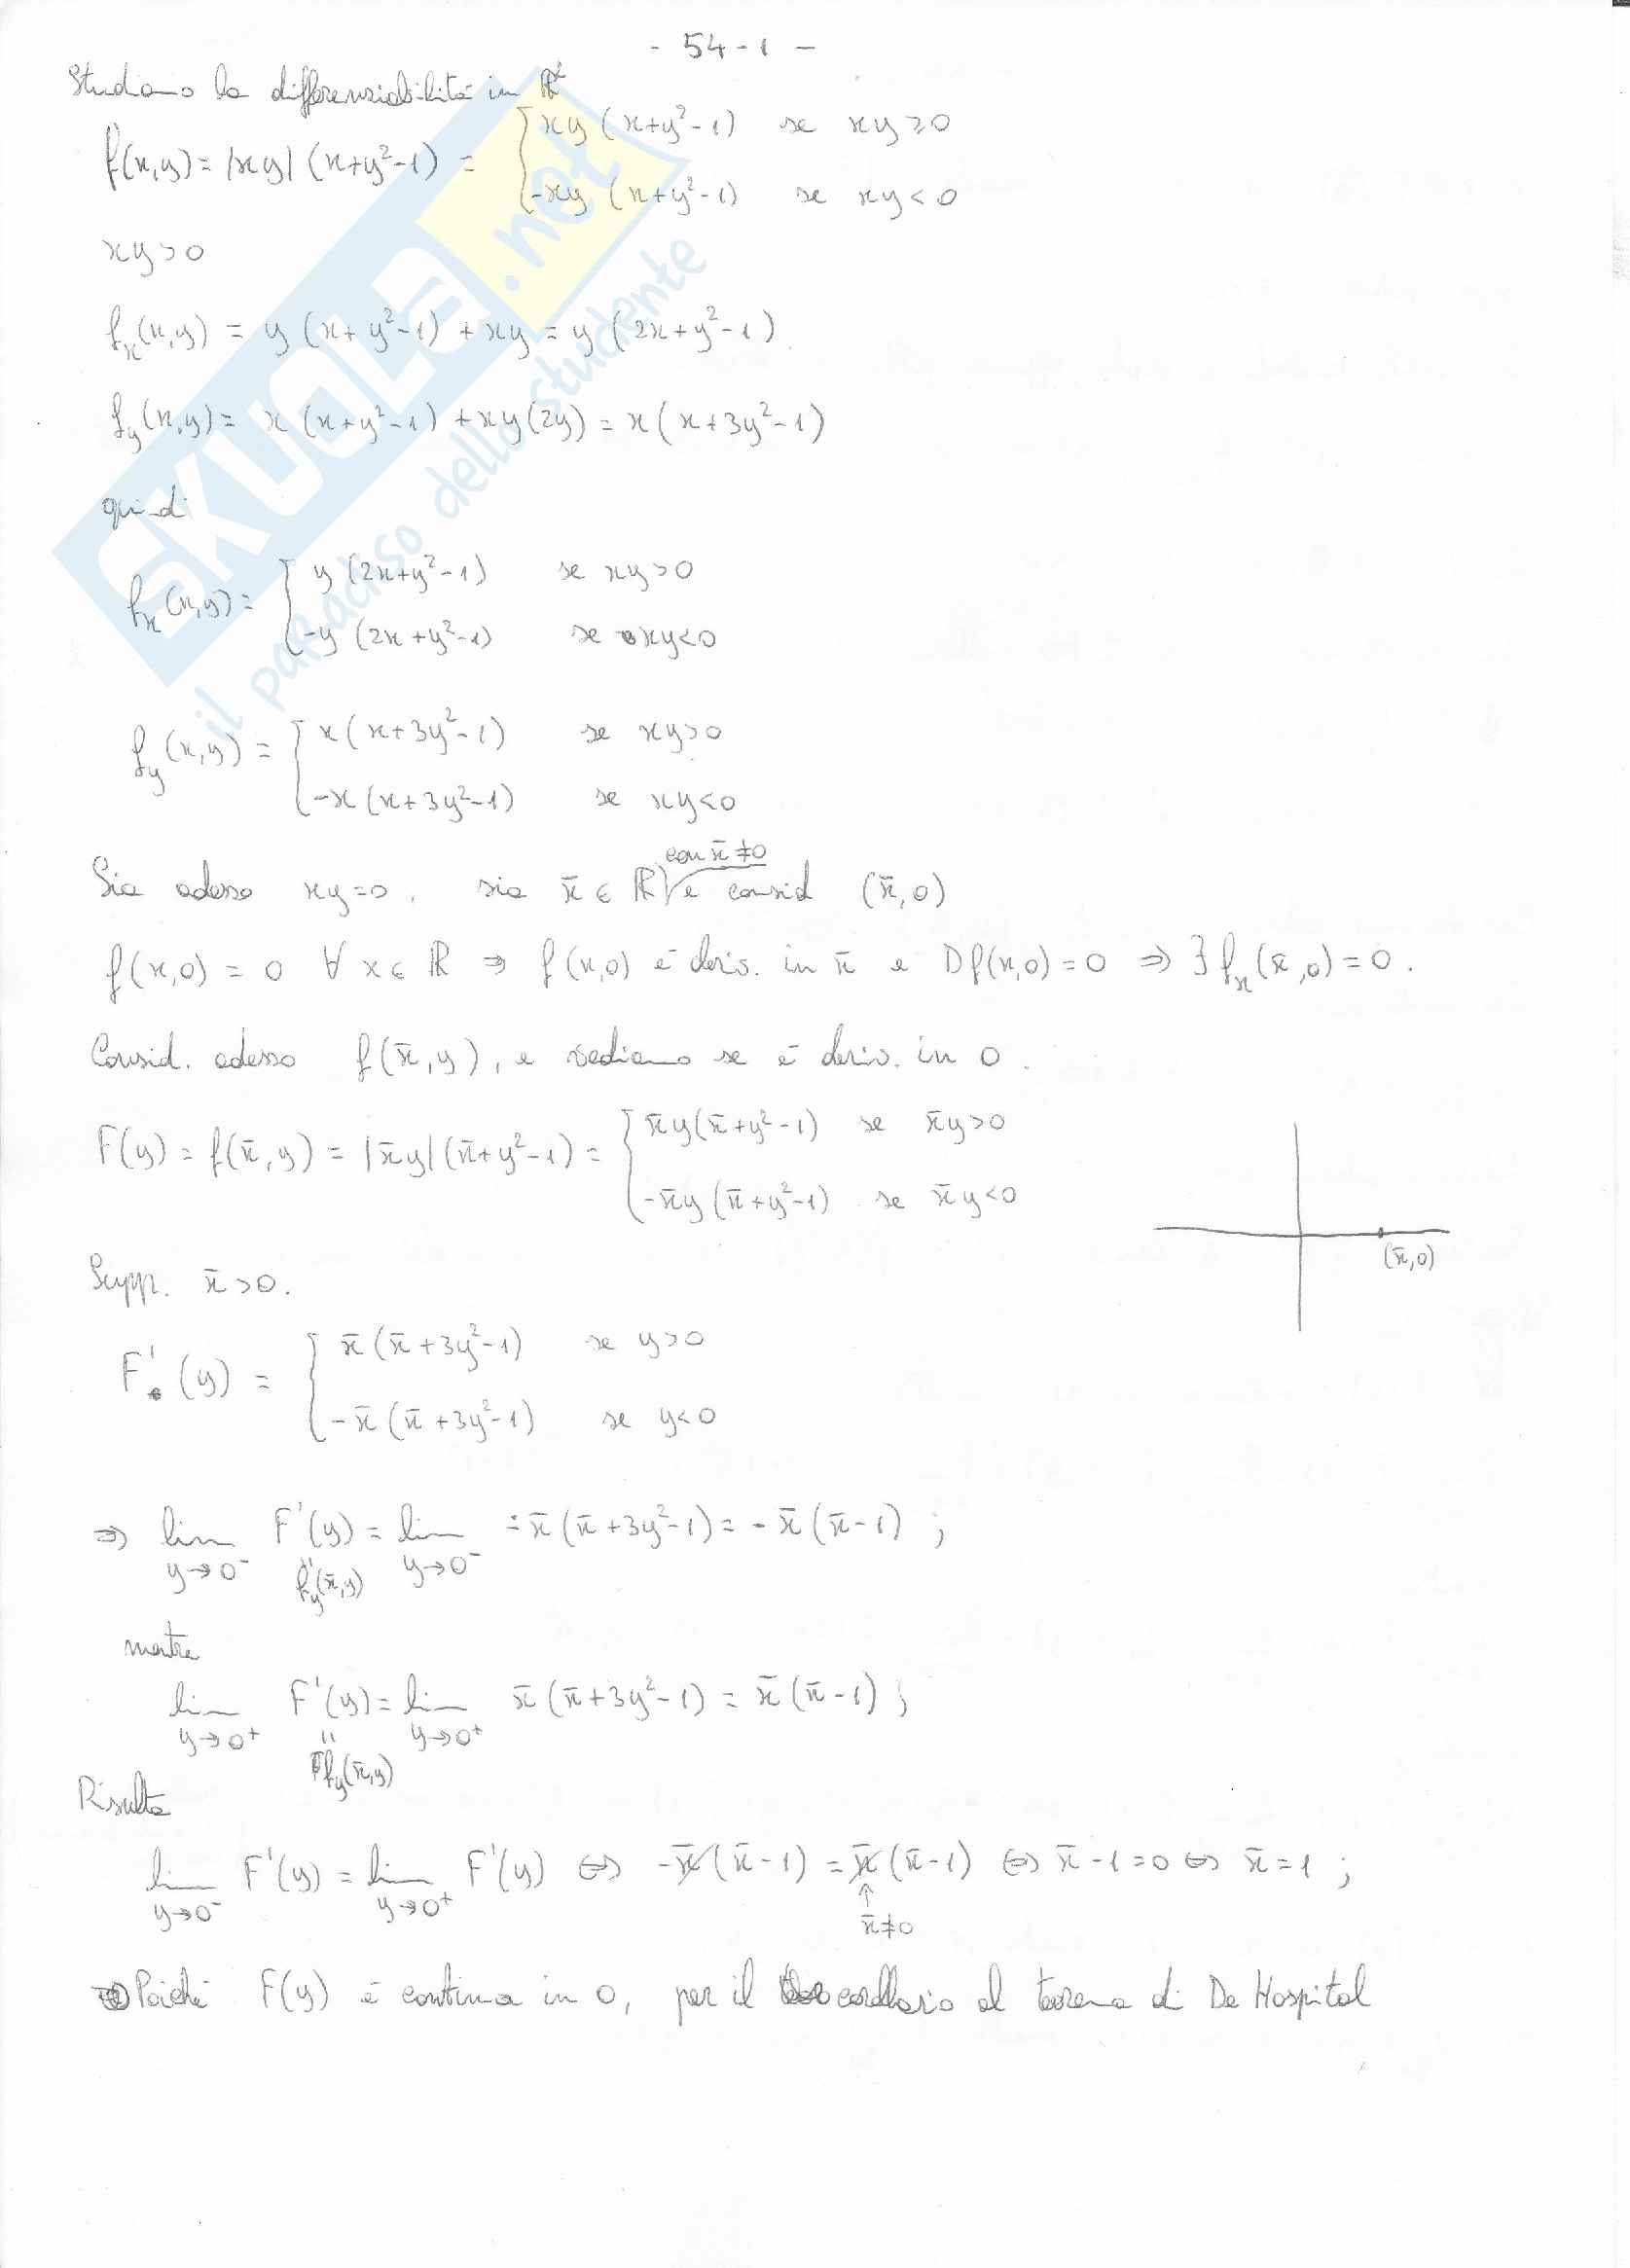 - 54-1 -
Studiamo la differenziabilità in ℝ²
f(x,y) = |xy| (x+y²-1) = { xy (x+y²-1) se xy ≥ 0
-xy (x+y²-1) se xy < 0
xy > 0
fₓ(x,y) = y (x+y²-1) + xy = y (2x+y²-1)
f_y(x,y) = x (x+y²-1) + xy(2y) = x (x+3y²-1)
quindi
fₓ(x,y) = { y (2x+y²-1) se xy > 0
-y (2x+y²-1) se xy < 0
f_y(x,y) = { x (x+3y²-1) se xy > 0
-x (x+3y²-1) se xy < 0
Sia adesso xy = 0, sia x̄ ∈ ℝ con x̄ ≠ 0 e consid (x̄,0)
f(x,0) = 0 ∀ x ∈ ℝ ⇒ f(x,0) è deriv. in x̄ e Df(x,0) = 0 ⇒ ∃ fₓ(x̄,0) = 0.
Consid. adesso f(x̄,y), e vediamo se è deriv. in 0.
F(y) = f(x̄,y) = |x̄y| (x̄+y²-1) = { x̄y (x̄+y²-1) se x̄y > 0
-x̄y (x̄+y²-1) se x̄y < 0
(x̄,0)
Supp. x̄ > 0.
F'(y) = { x̄ (x̄+3y²-1) se y > 0
-x̄ (x̄+3y²-1) se y < 0
⇒ lim F'(y) = lim -x̄ (x̄+3y²-1) = -x̄ (x̄-1) ;
y→0⁻ f_y(x̄,y) y→0⁻
mentre
lim F'(y) = lim x̄ (x̄+3y²-1) = x̄ (x̄-1) ;
y→0⁺ f_y(x̄,y) y→0⁺
Risulta
lim F'(y) = lim F'(y) ⇔ -x̄ (x̄-1) = x̄ (x̄-1) ⇔ x̄-1 = 0 ⇔ x̄ = 1 ;
y→0⁻ y→0⁺ ↑ x̄ ≠ 0
Poiché F(y) è continua in 0, per il corollario al teorema di De Hospital
SKUOLA.net
il paradiso dello studente